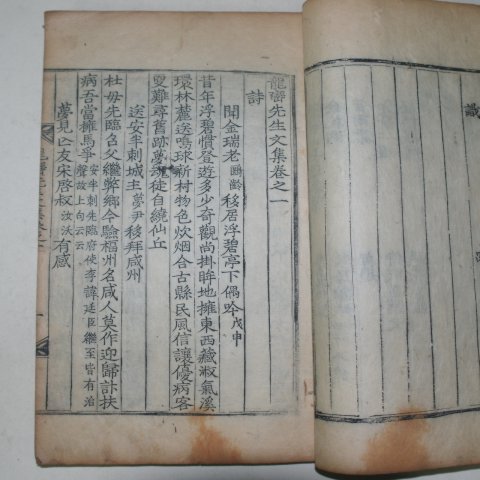 龍𨛗先生文集卷之一
詩
聞金瑞老 鵬齡 移居浮碧亭下偶吟 戊申
昔年浮碧慣登遊多少奇觀尚掛眸地擁東西藏淑氣溪
環林麓送鳴球新村物色炊烟合古縣民風信讓優病客
夏難尋舊跡夢魂徒自繞仙丘
送安半刺城主 夢尹 移拜咸州
杜母先臨召父繼弊鄉今驗福州名咸人莫作迎歸計扶
病吾當擁馬爭 安半刺先臨府使李諱廷臣繼至皆有治聲故上句云云
夢見亡友宋啓叔 汝沃 有感
識